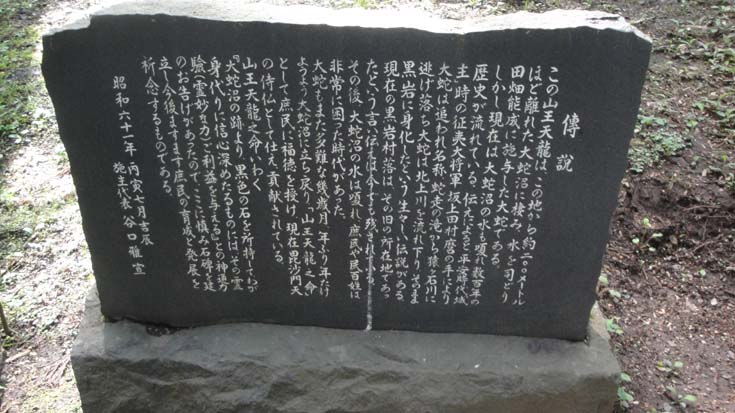 傳説
この山王天龍は、この地から約二〇〇メートル
ほど離れた、大蛇沼に棲み、水を司どり
田畑能威に施与した大蛇である。
しかし、現在は大蛇沼の水も涸れ、数百年の
歴史が流れている。伝えによると平安藤代城
主、時の征夷大将軍坂上田村麿の手により
大蛇は追われ、名称、蛇走の滝から猿ヶ石川に
逃げ落ち大蛇は北上川を流れ下り、そのまま
黒岩に身化したという生々しい伝説がある
現在の黒岩村落は、その旧の所在地であっ
たという言い伝えは今でも残されている。
その後、大蛇沼の水は涸れ、庶民や民百姓は
非常に困った時代があった。
大蛇もまた多難な幾歳月一年より年だけ
ようよう大蛇沼に立ち戻り、「山王天龍之命」
として庶民に福徳を授け、現在毘沙門天
の侍仏として仕え、貢献されている。
山王天龍之命いわく
『大蛇沼の跡より、黒色の石を所持して、わが
身代りに信心深めたるものには、その霊
験(霊妙な力)ご利益を与える』との神夢
のお告げがあったので、ここに慎み石碑を建
立し、今後ますます庶民の育成と発展を
祈念するものである。
昭和六十一年丙寅七月吉辰
施主代表 谷口雅宣